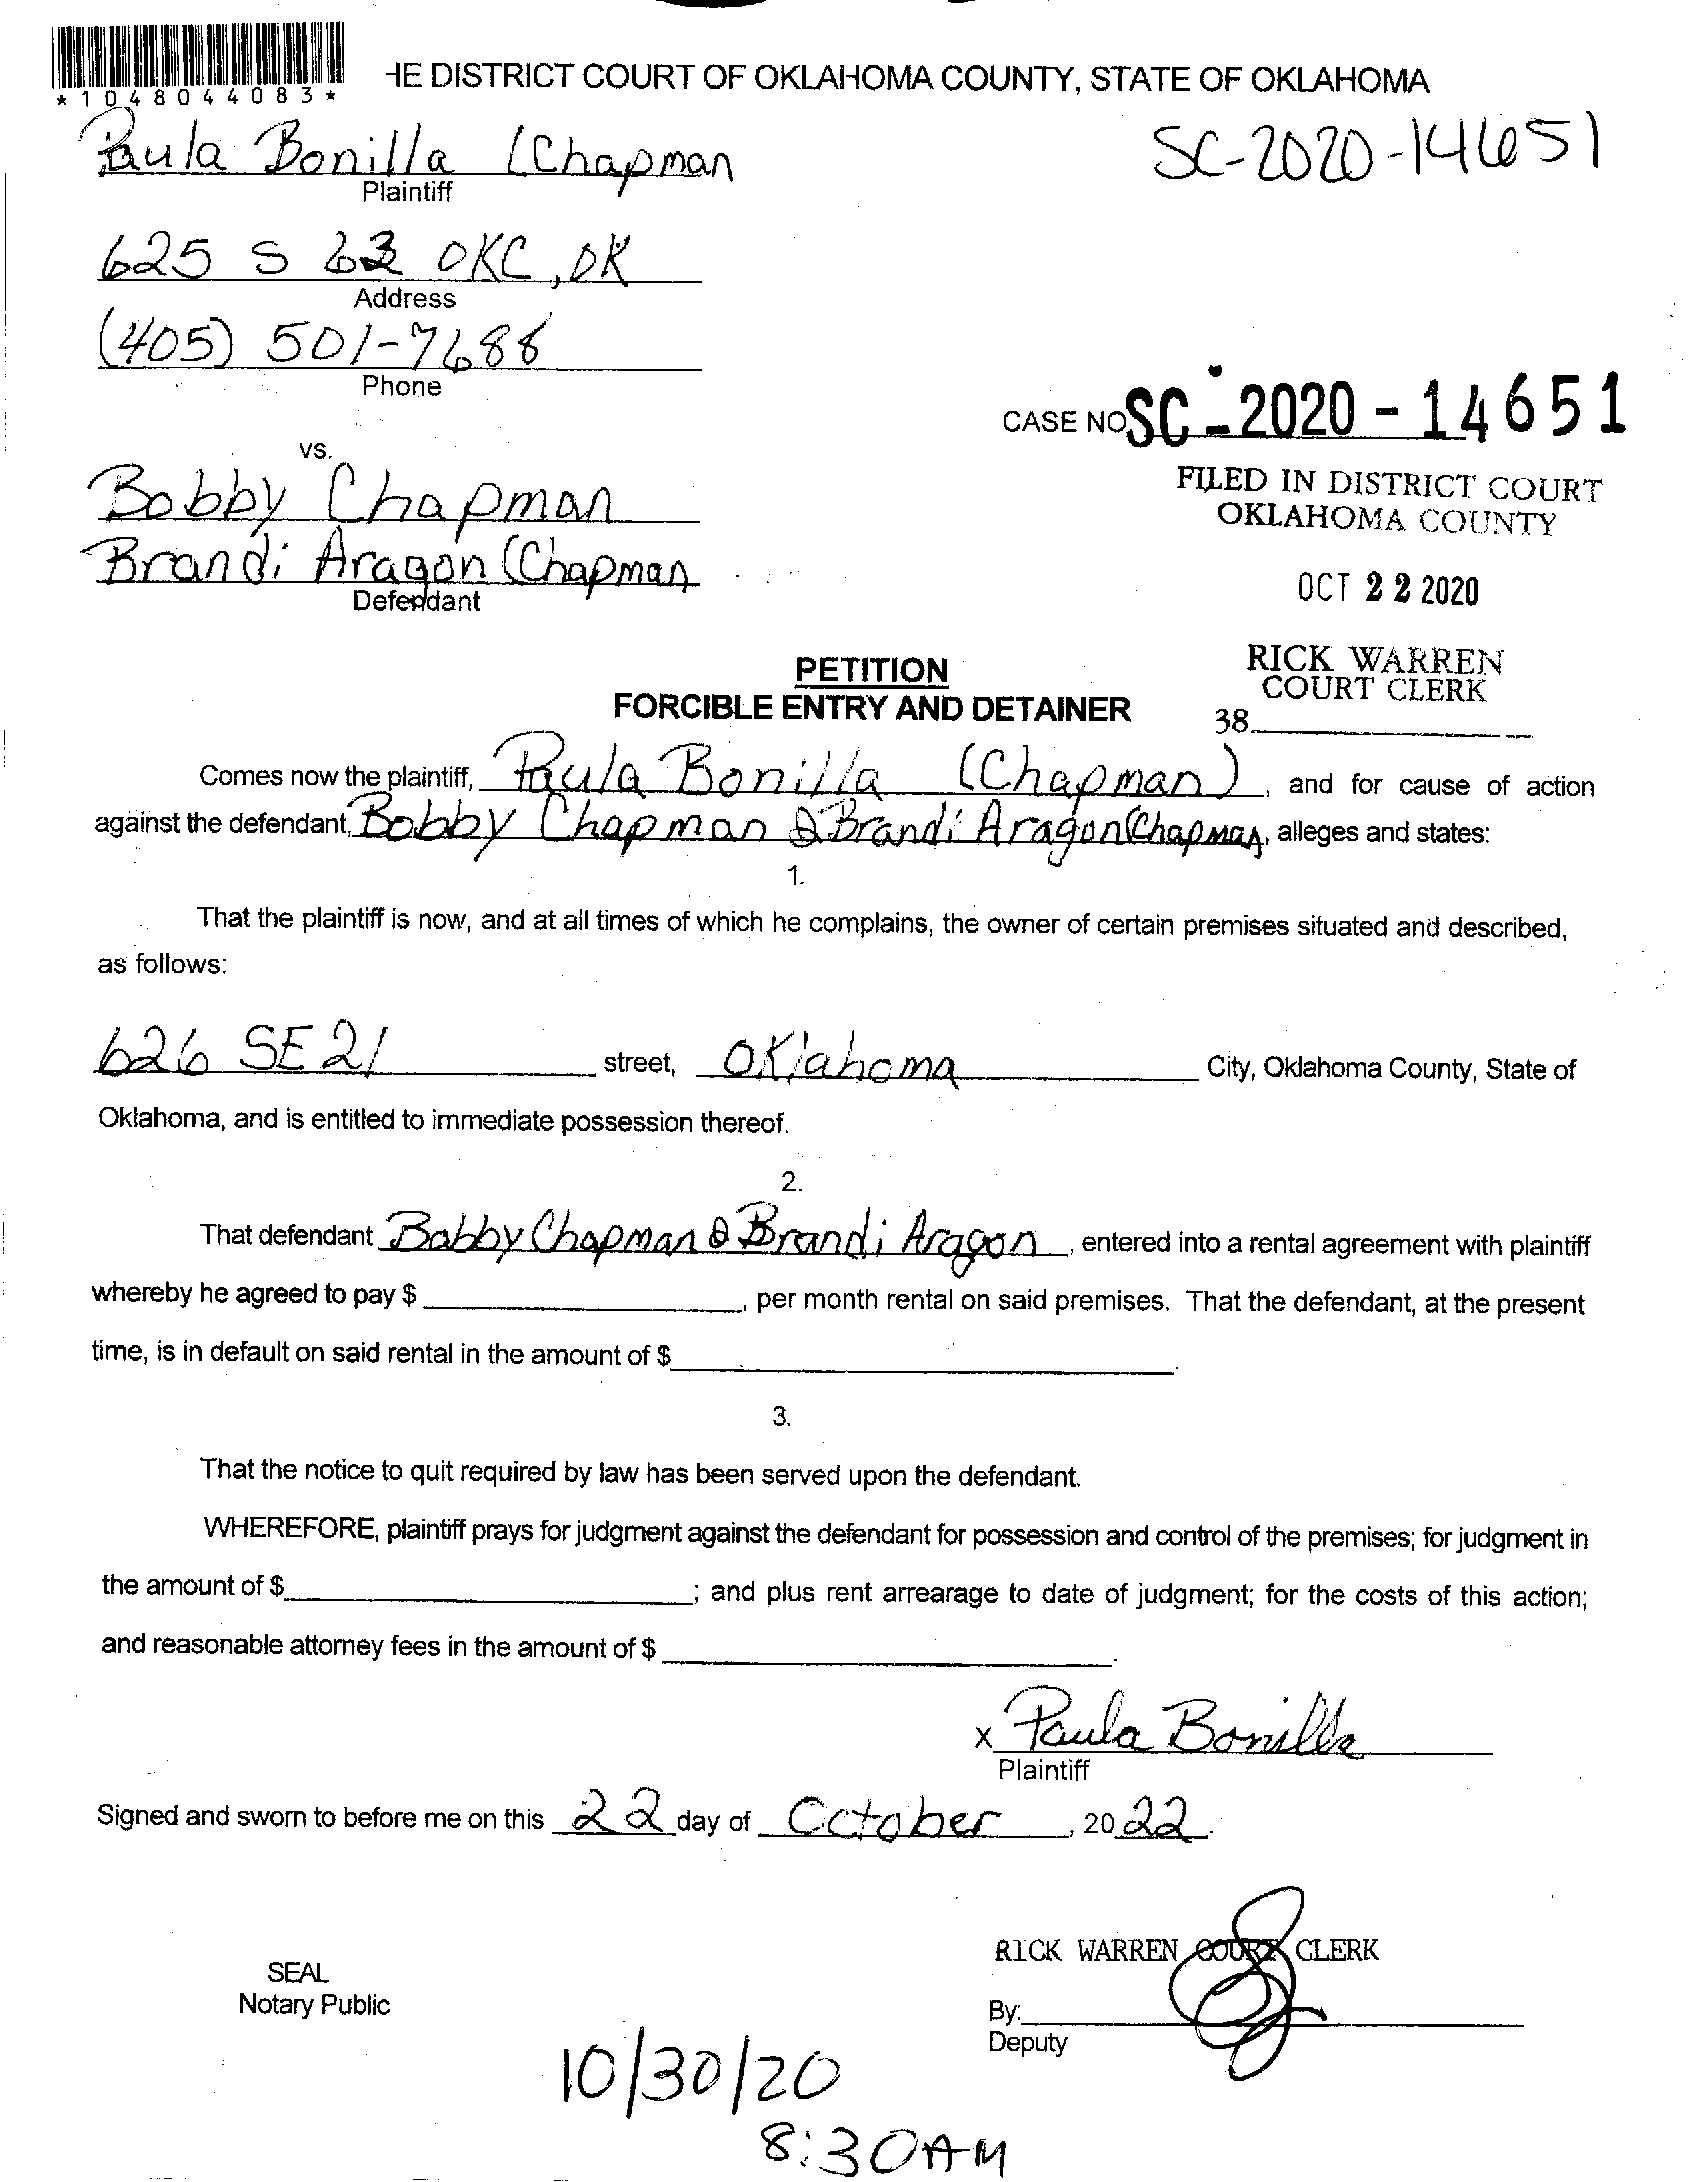 *1048044083*
HE DISTRICT COURT OF OKLAHOMA COUNTY, STATE OF OKLAHOMA
Paula Bonilla (Chapman
SC-2020-14651
Plaintiff
625 S 63 OKC, OK
Address
(405) 501-7688
Phone
CASE NO SC-2020-14651
vs.
FILED IN DISTRICT COURT
OKLAHOMA COUNTY
Bobby Chapman
Brandi Aragon (Chapman
Defendant
OCT 22 2020
RICK WARREN
COURT CLERK
38
PETITION
FORCIBLE ENTRY AND DETAINER
Comes now the plaintiff, Paula Bonilla (Chapman), and for cause of action
against the defendant, Bobby Chapman & Brandi Aragon (Chapman, alleges and states:
1.
That the plaintiff is now, and at all times of which he complains, the owner of certain premises situated and described,
as follows:
626 SE 21 street, Oklahoma City, Oklahoma County, State of
Oklahoma, and is entitled to immediate possession thereof.
2.
That defendant Bobby Chapman & Brandi Aragon, entered into a rental agreement with plaintiff
whereby he agreed to pay $, per month rental on said premises. That the defendant, at the present
time, is in default on said rental in the amount of $.
3.
That the notice to quit required by law has been served upon the defendant.
WHEREFORE, plaintiff prays for judgment against the defendant for possession and control of the premises; for judgment in
the amount of $; and plus rent arrearage to date of judgment; for the costs of this action;
and reasonable attorney fees in the amount of $.
x Paula Bonilla
Plaintiff
Signed and sworn to before me on this 22 day of October, 2022.
RICK WARREN COURT CLERK
SEAL
Notary Public
By:
Deputy
10/30/20
8:30AM